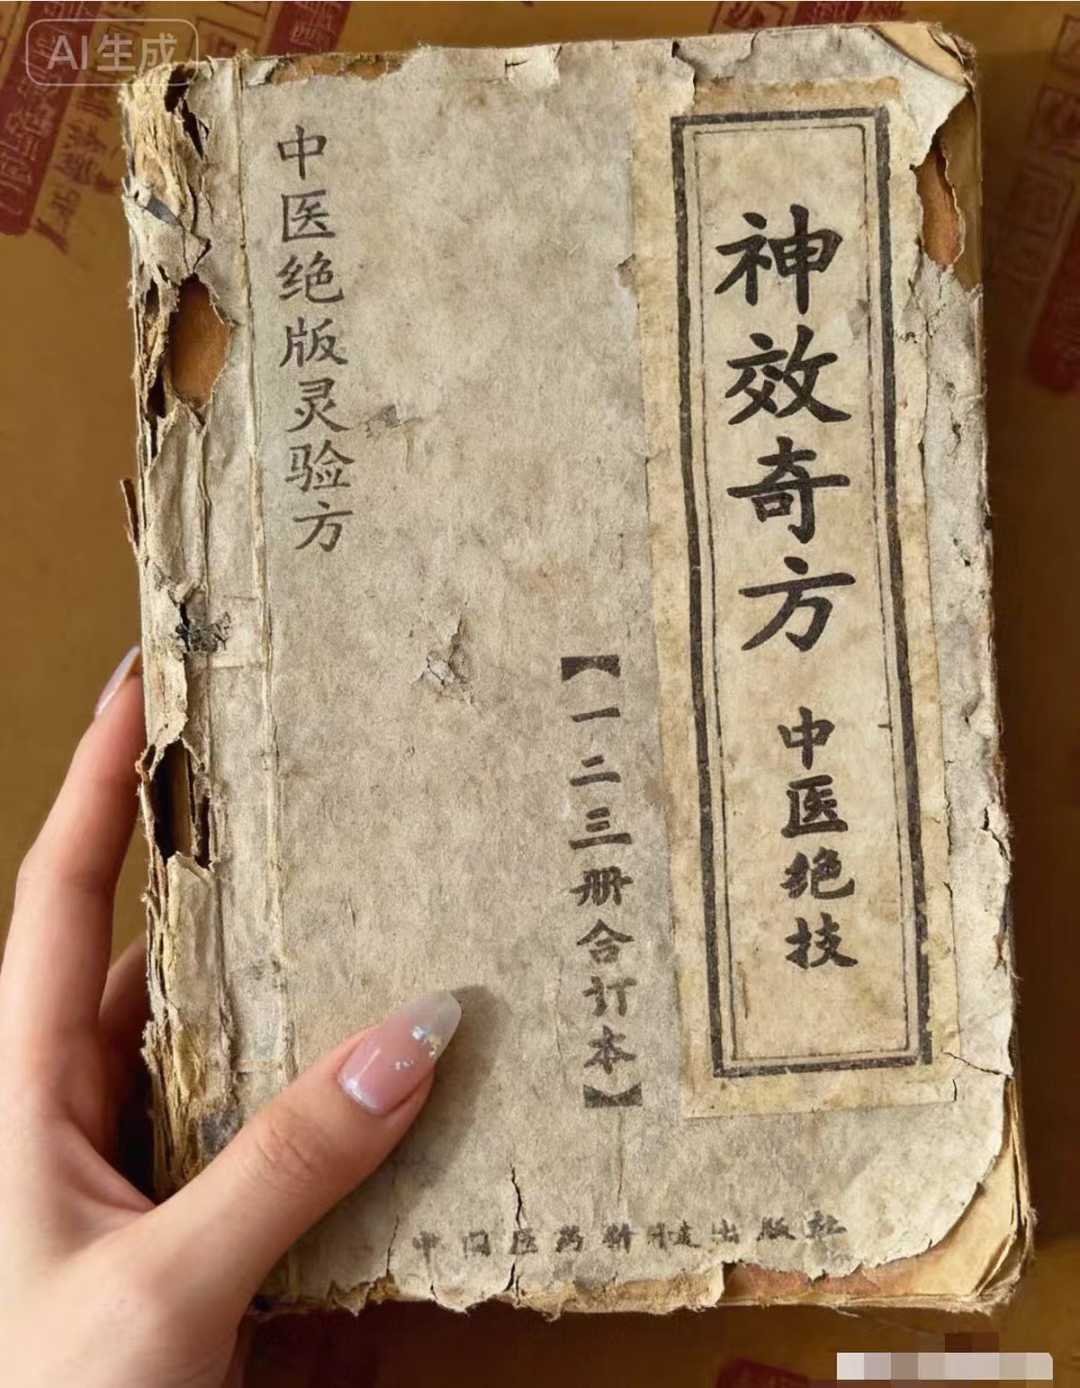 AI生成
神效奇方
中医绝技
【一二三册合订本】
中医绝版灵验方
出版社